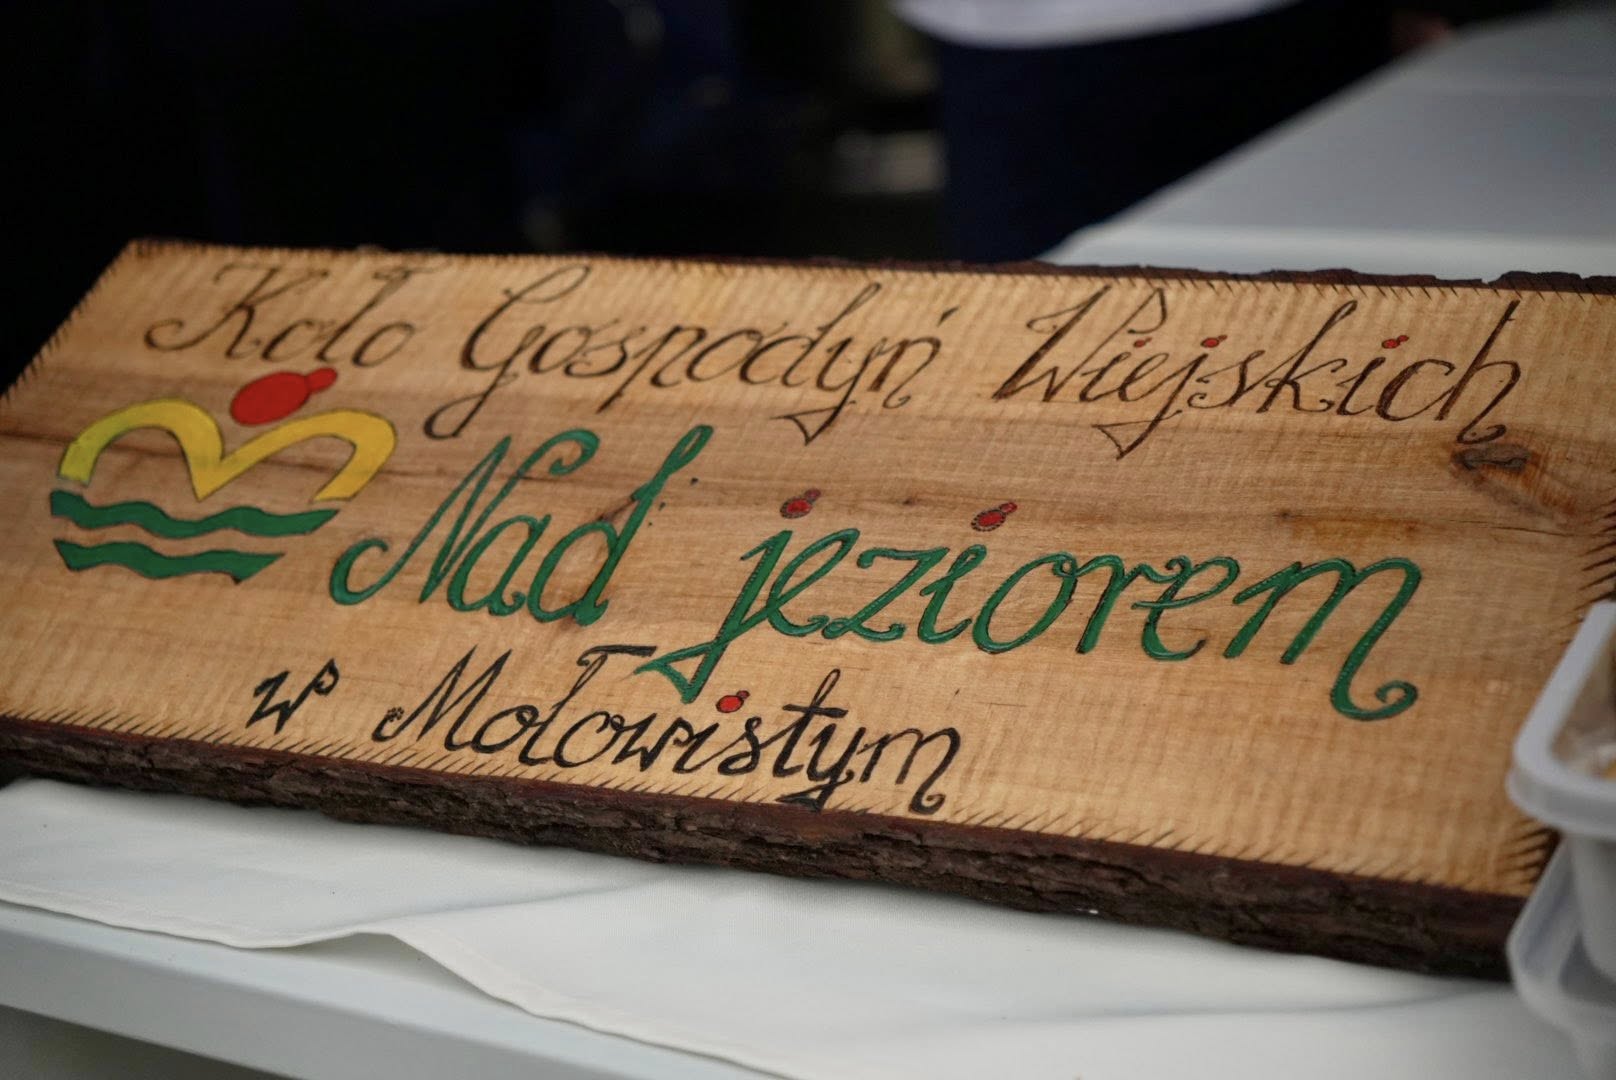 Koło Gospodyń Wiejskich
Nad jeziorem
w Mołowistym